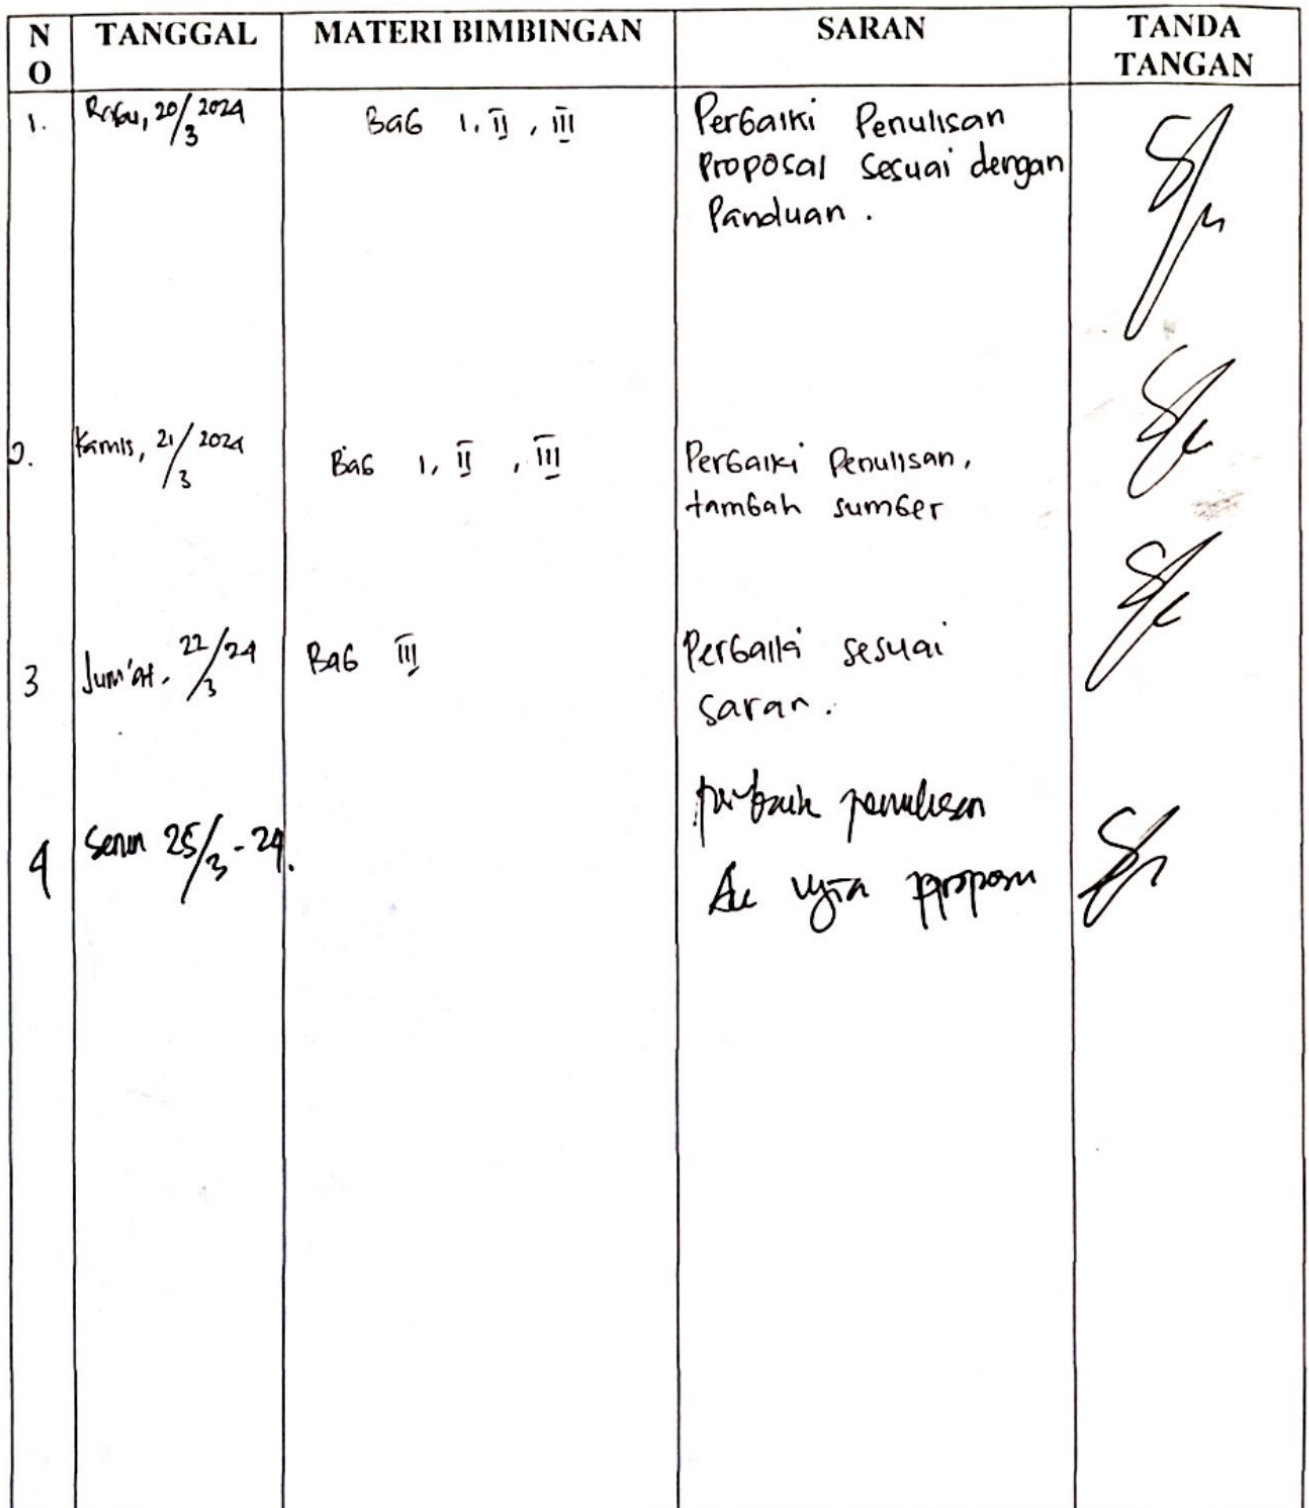 NO TANGGAL MATERI BIMBINGAN SARAN TANDA TANGAN
1. Rabu, 20/3 2024 Bab I, II, III Perbaiki Penulisan
Proposal Sesuai dengan
Panduan.
2. Kamis, 21/3 2024 Bab I, II, III Perbaiki Penulisan,
tambah sumber
3 Jum'at, 22/3 24 Bab III Perbaiki sesuai
saran.
4 Senin 25/3-24. perbaiki penulisan